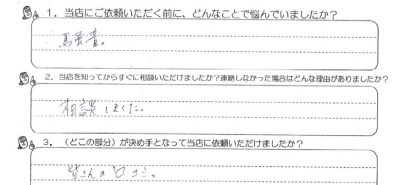 1．当店にご依頼いただく前に、どんなことで悩んでいましたか？
騒音。
2．当店を知ってからすぐに相談いただけましたか？連絡しなかった場合はどんな理由がありましたか？
相談しました。
3．（どこの部分）が決め手となって当店に依頼いただけましたか？
皆さんの口コミ。